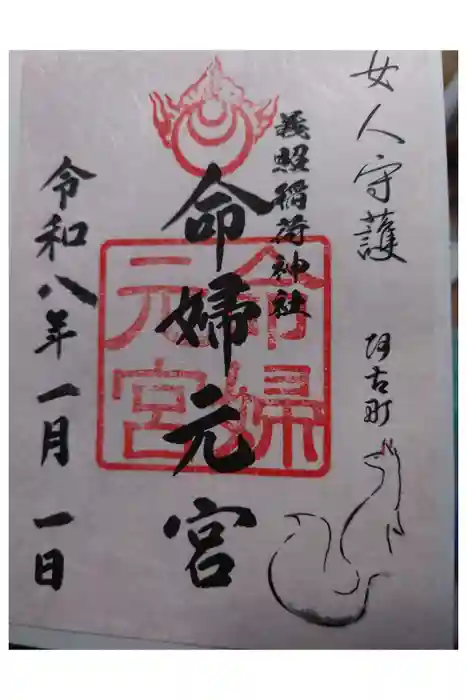 女人守護
阿古町
義照稲荷神社
命婦元宮
命婦
元宮
令和八年一月一日